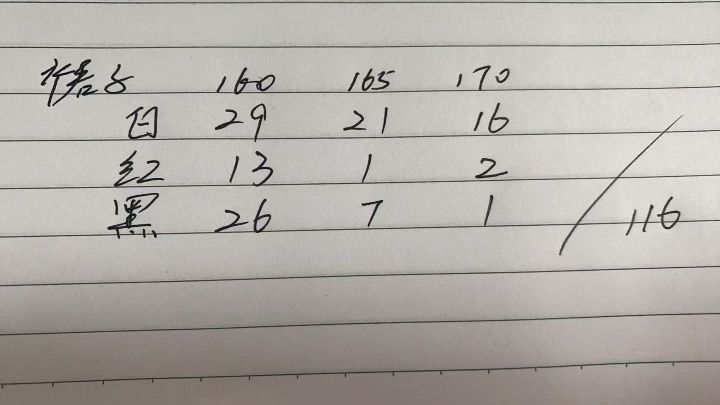 160 165 170
白 29 21 16
红 13 1 2
黑 26 7 1 / 116